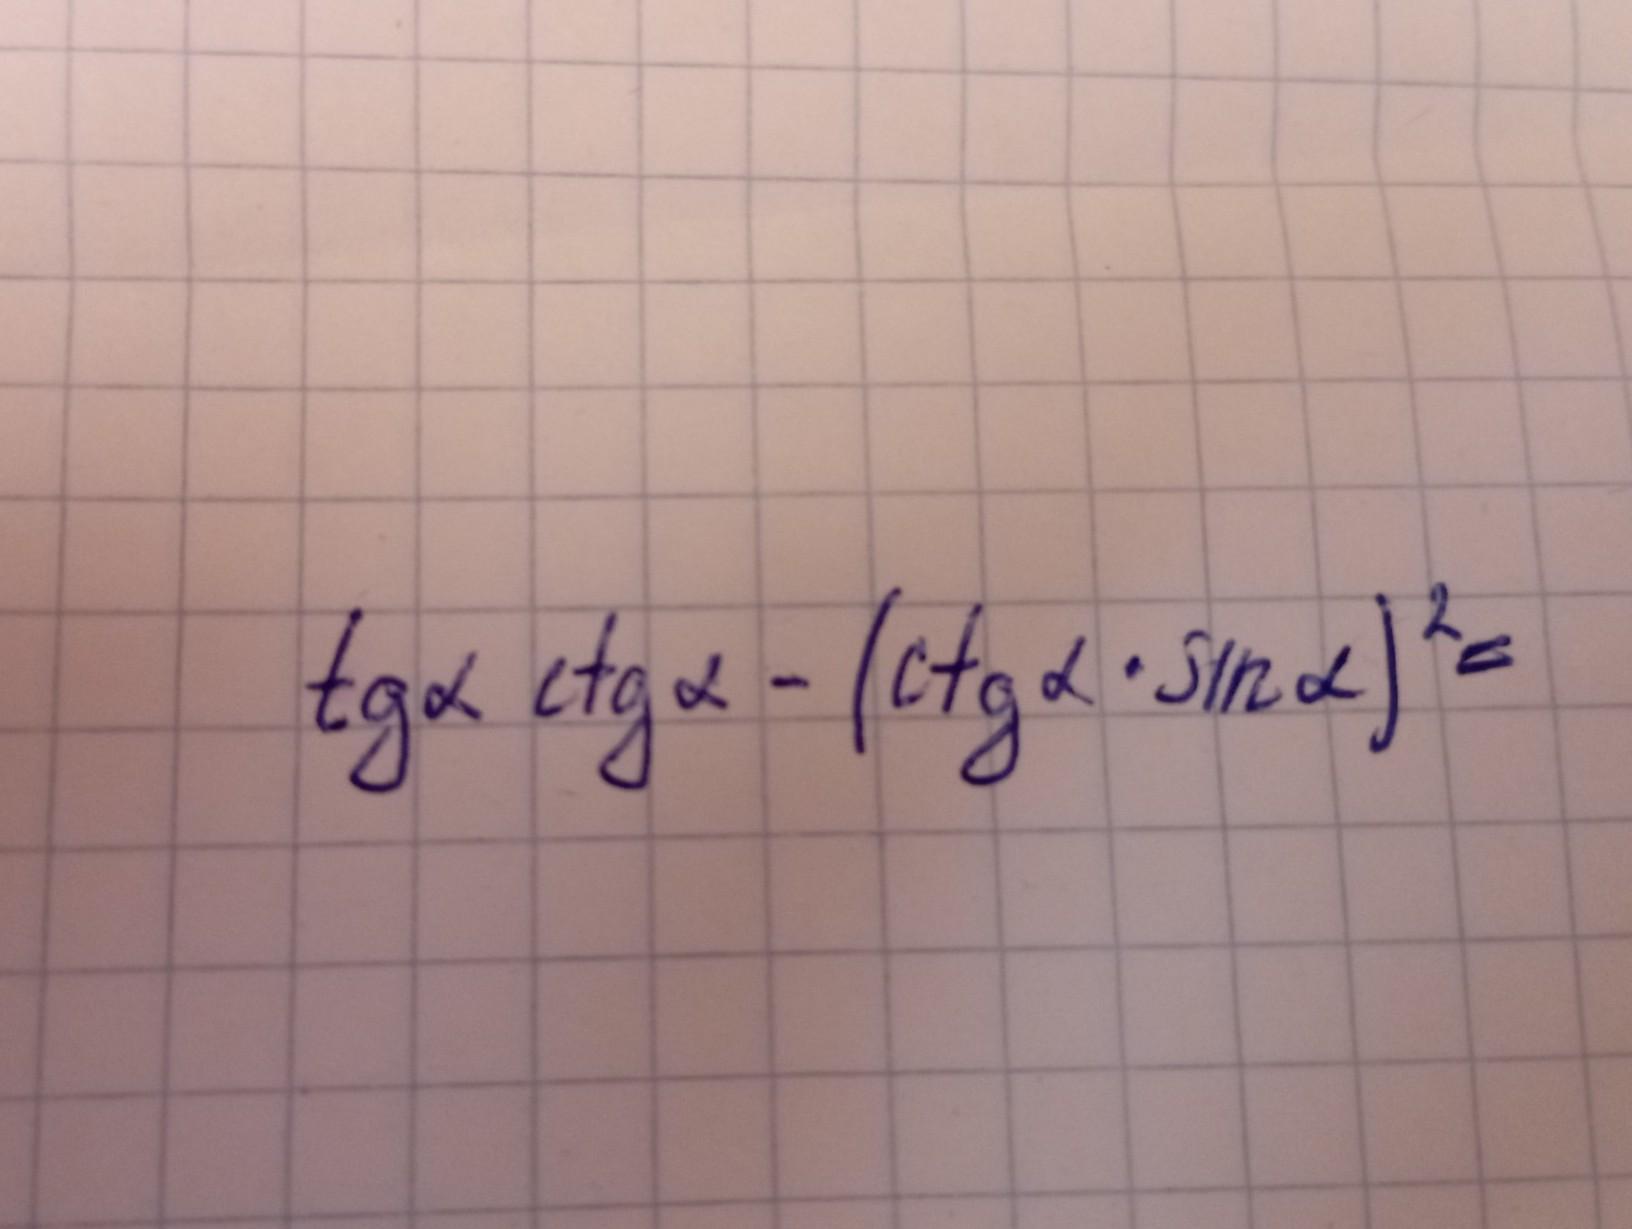 tgα ctgα - (ctgα · sinα)²=